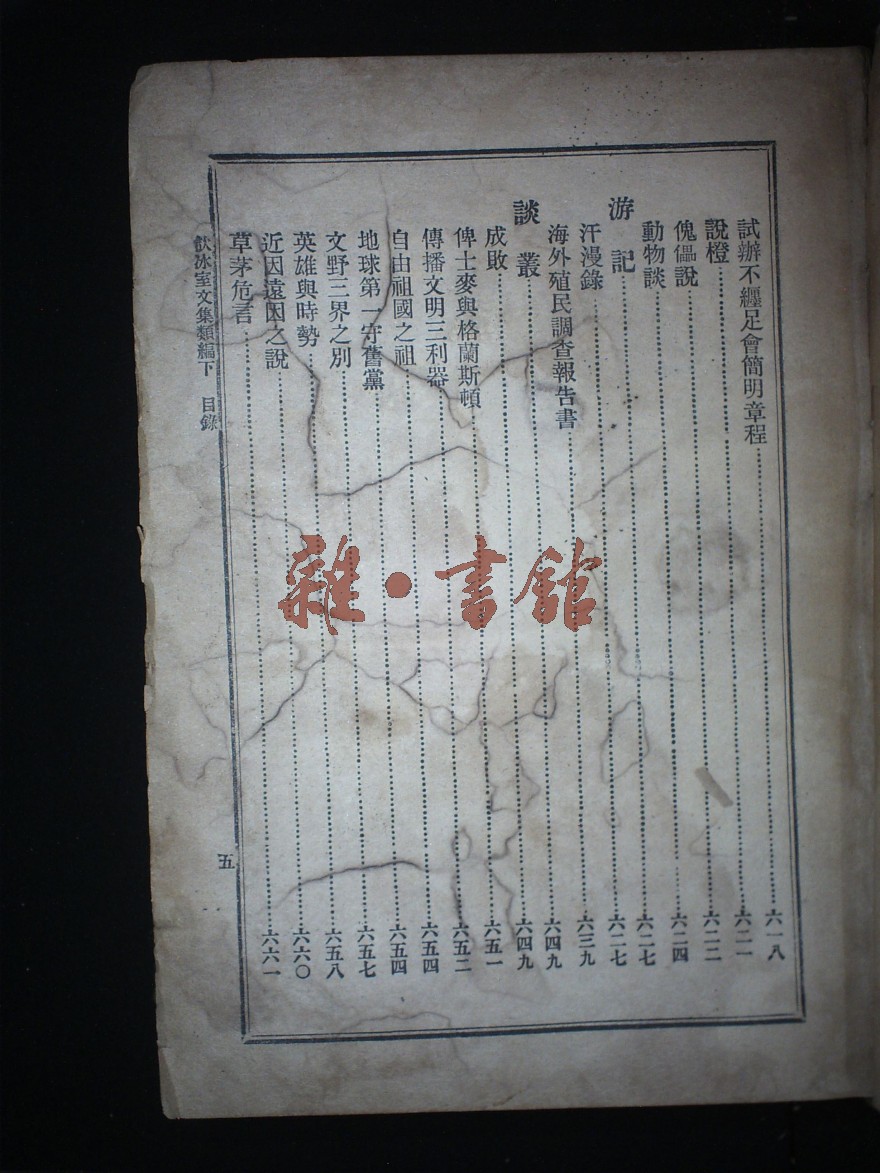 試辦不纏足會簡明章程……六一八
說橙……六二一
傀儡說……六二二
動物談……六二四
游記……六二七
汗漫錄……六二七
海外殖民調查報告書……六三九
談叢……六四九
成敗……六四九
俾士麥與格蘭斯頓……六五一
傳播文明三利器……六五二
自由祖國之祖……六五四
地球第一守舊黨……六五四
文野三界之別……六五七
英雄與時勢……六五八
近因遠因之說……六六〇
草茅危言……六六一
飲冰室文集類編下 目錄 五
雜·書館